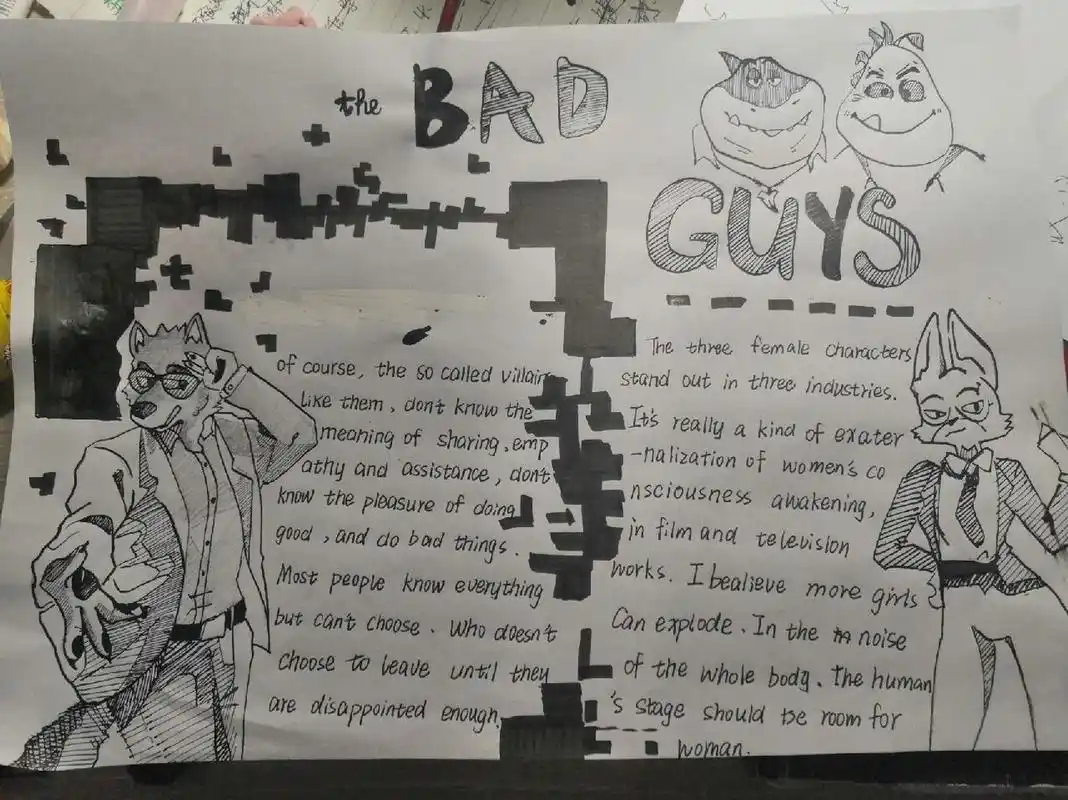 the BAD
GUYS
of course, the so called villain
like them, dont know the
meaning of sharing, emp
athy and assistance, dont
know the pleasure of doing
good, and do bad things.
Most people know everything
but can't choose. Who doesn't
choose to leave until they
are disappointed enough.
The three female characters
stand out in three industries.
It's really a kind of exater
-nalization of women's co
nsciousness awakening,
in film and television
works. I bealieve more girls
Can explode. In the noise
of the whole body. The human
's stage should be room for
woman.